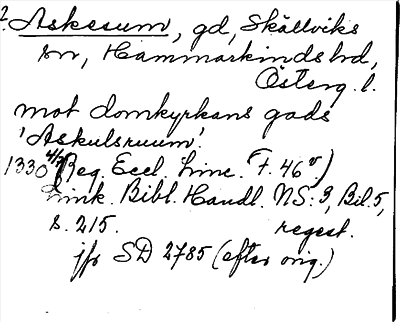 ? Askesum, gd, Skällviks
sn, Hammarkinds hd,
Österg. l.
mot domkyrkans gods
'Askulsruum'.
1330 4/7 Reg. Eccl. Linc. (F. 46v.)
Link. Bibl. Handl. NS: 3, Bil. 5,
s. 215. regest.
jfr SD 2785 (efter orig.)